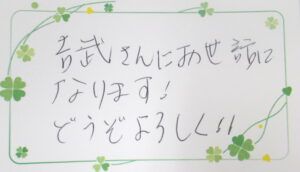 吉武さんにお世話に
なります!
どうぞよろしく!!